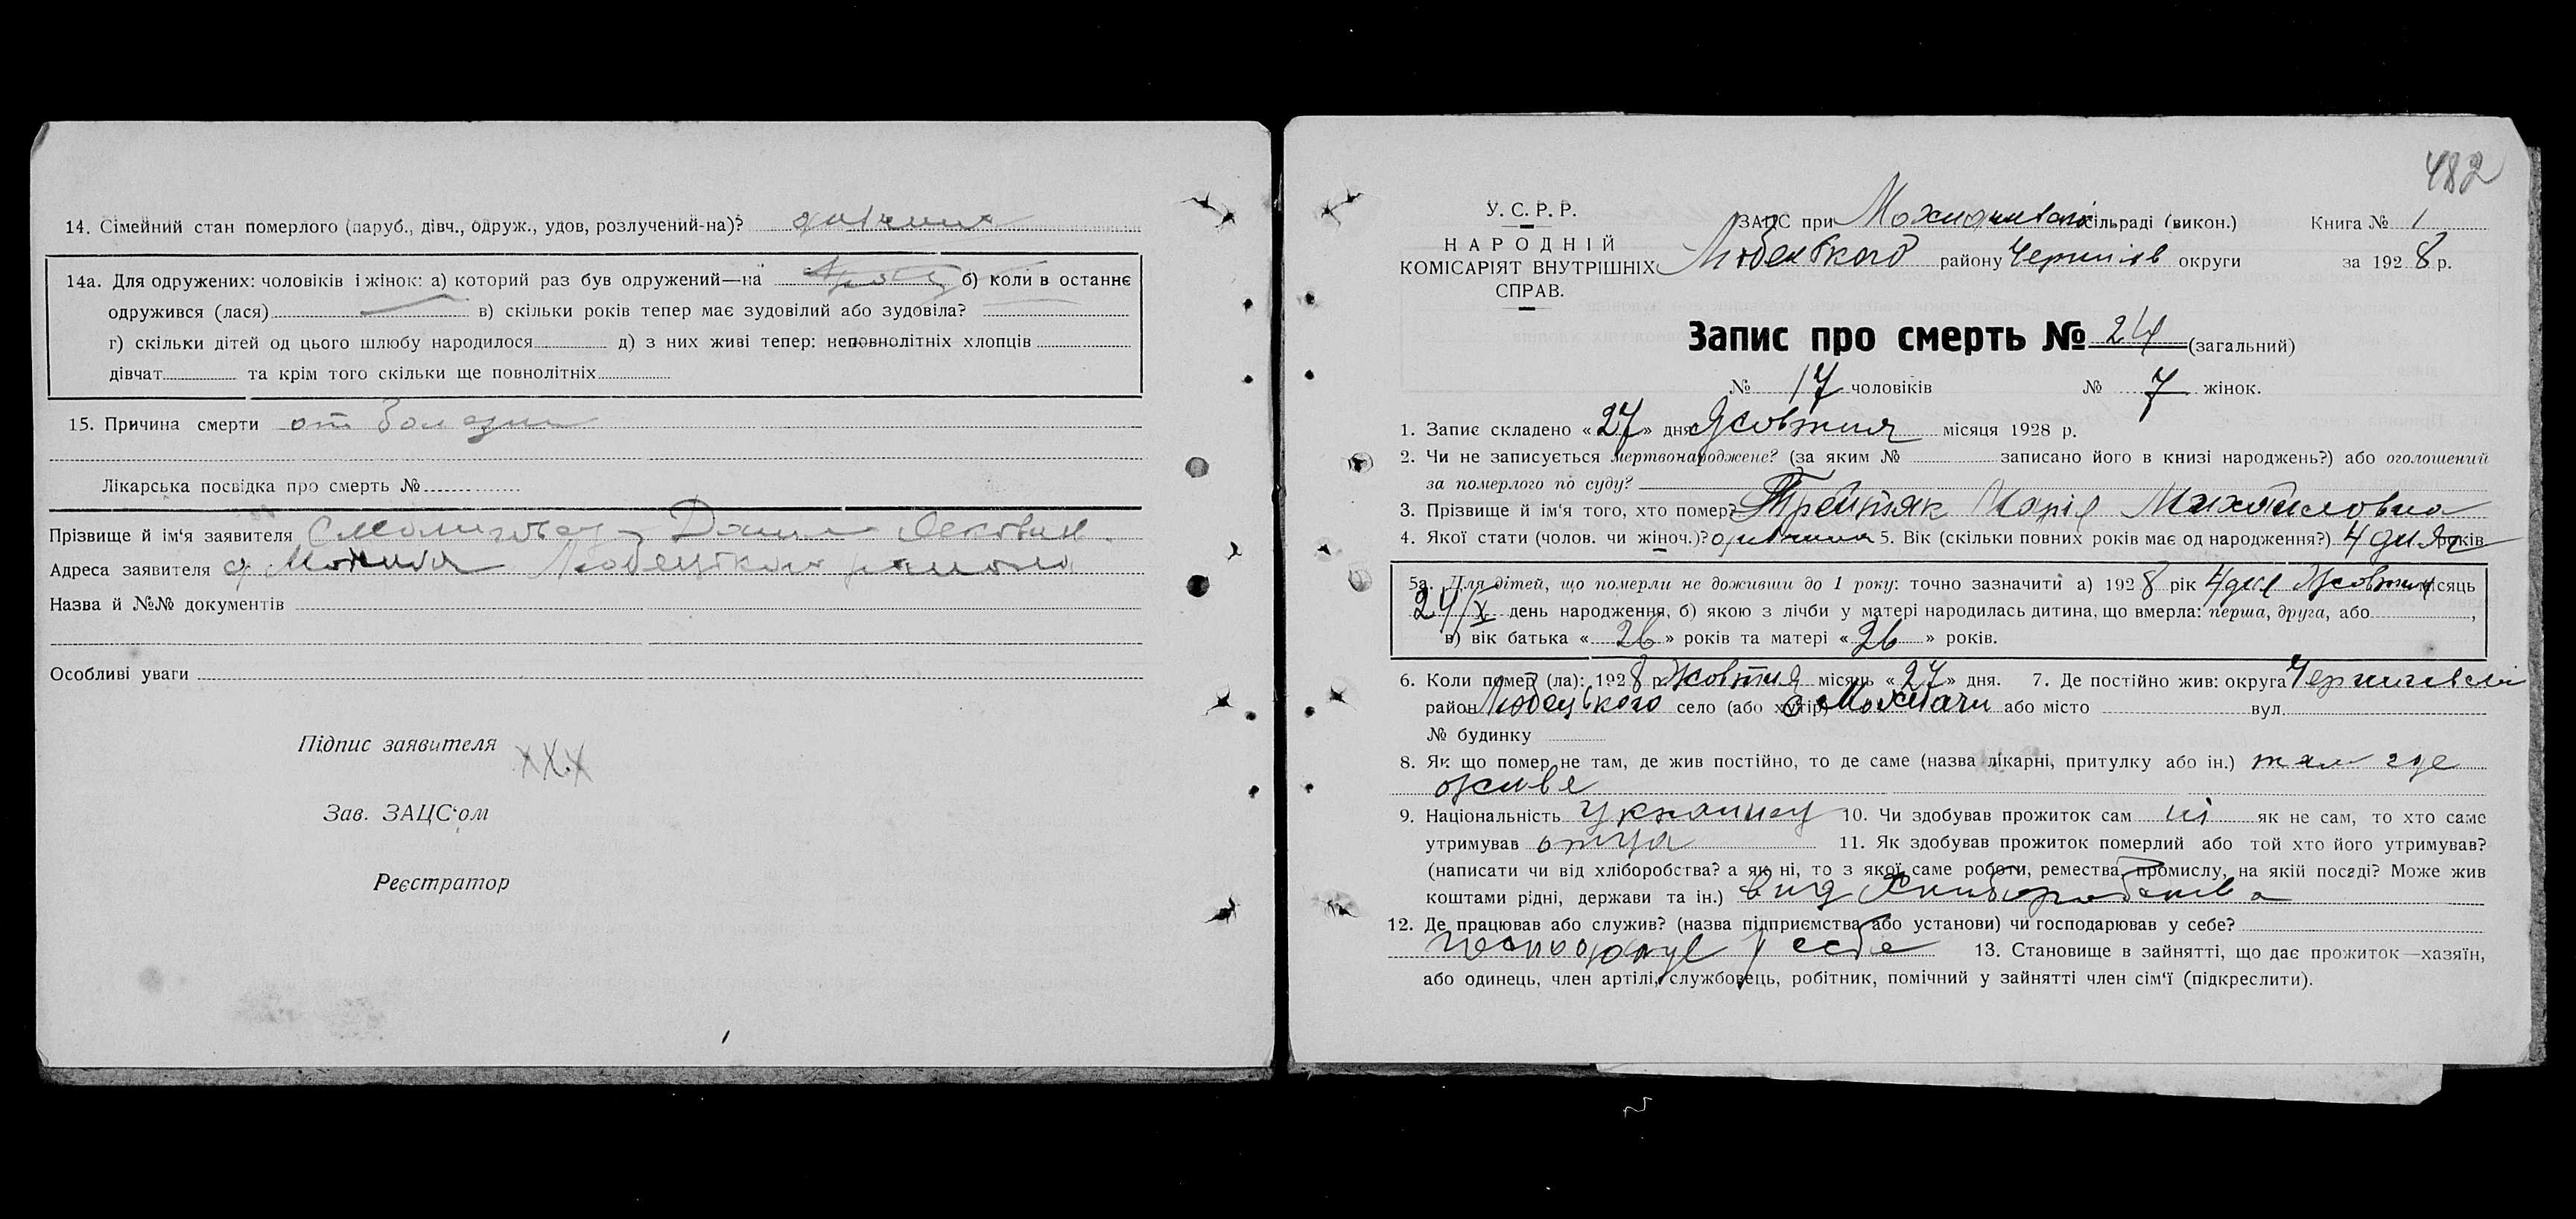 14. Сімейний стан померлого (паруб., дівч., одруж., удов, розлучений-на)?
14а. Для одружених: чоловіків і жінок: а) которий раз був одружений—на б) коли в останнє
одружився (лася) в) скільки років тепер має зудовілий або зудовіла?
г) скільки дітей од цього шлюбу народилося д) з них живі тепер: неповнолітніх хлопців
дівчат та крім того скільки ще повнолітніх
15. Причина смерти от болезни
Лікарська посвідка про смерть №
Прізвище й ім'я заявителя
Адреса заявителя Любецького району
Назва й №№ документів
Особливі уваги
Підпис заявителя ххх
Зав. ЗАЦС'ом
Реєстратор
482
У. С. Р. Р.
НАРОДНІЙ
КОМІСАРІЯТ ВНУТРІШНІХ
СПРАВ.
ЗАЦС при сільраді (викон.) Книга № 1
Любецького району Чернігів округи за 1928 р.
Запис про смерть № 24 (загальний)
№ 17 чоловіків № 7 жінок.
1. Запис складено «27» дня Жовтня місяця 1928 р.
2. Чи не записується мертвонароджене? (за яким № записано його в книзі народжень?) або оголошений
за померлого по суду?
3. Прізвище й ім'я того, хто помер? Трейтяк Марія Михайловна
4. Якої стати (чолов. чи жіноч.)? 5. Вік (скільки повних років має од народження?) 4 дня років
5а. Для дітей, що померли не доживши до 1 року: точно зазначити а) 1928 рік 4 дня Жовтня місяць
24/X день народження, б) якою з лічби у матері народилась дитина, що вмерла: перша, друга, або ,
в) вік батька «26» років та матері «26» років.
6. Коли помер (ла): 1928 р. Жовтня місяць «27» дня. 7. Де постійно жив: округа
район Любецького село (або хутір) або місто вул.
№ будинку
8. Як що помер не там, де жив постійно, то де саме (назва лікарні, притулку або ін.) там где
живе
9. Національність 10. Чи здобував прожиток сам ні як не сам, то хто саме
утримував отца 11. Як здобував прожиток померлий або той хто його утримував?
(написати чи від хліборобства? а як ні, то з якої саме роботи, ремества, промислу, на якій посаді? Може жив
коштами рідні, держави та ін.) вид хліборобства
12. Де працював або служив? (назва підприємства або установи) чи господарював у себе?
у себе 13. Становище в зайнятті, що дає прожиток—хазяїн,
або одинець, член артілі, службовець, робітник, помічний у зайнятті член сім'ї (підкреслити).